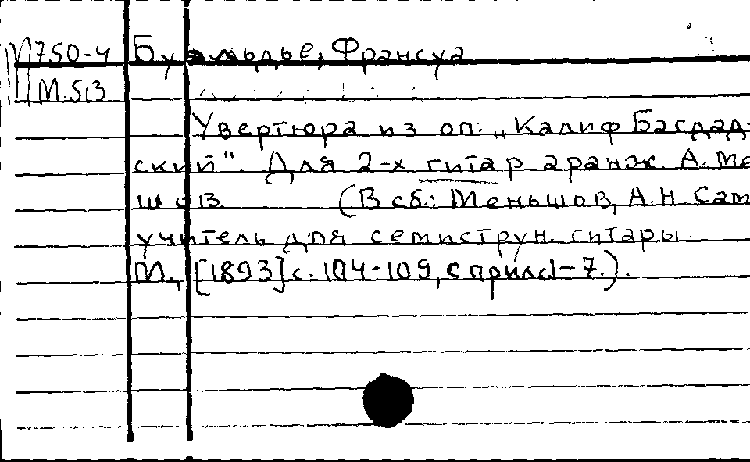 М750-4 Буальдье, Франсуа
М.513
Увертюра из оп. „Калиф Багдад-
ский". Для 2-х гитар аранж. А. Ме
шов (В сб.: Меньшов, А.Н. Сам
учитель для семиструн. гитары
М., [1893] с. 104-109, с прил. с 1-7.).